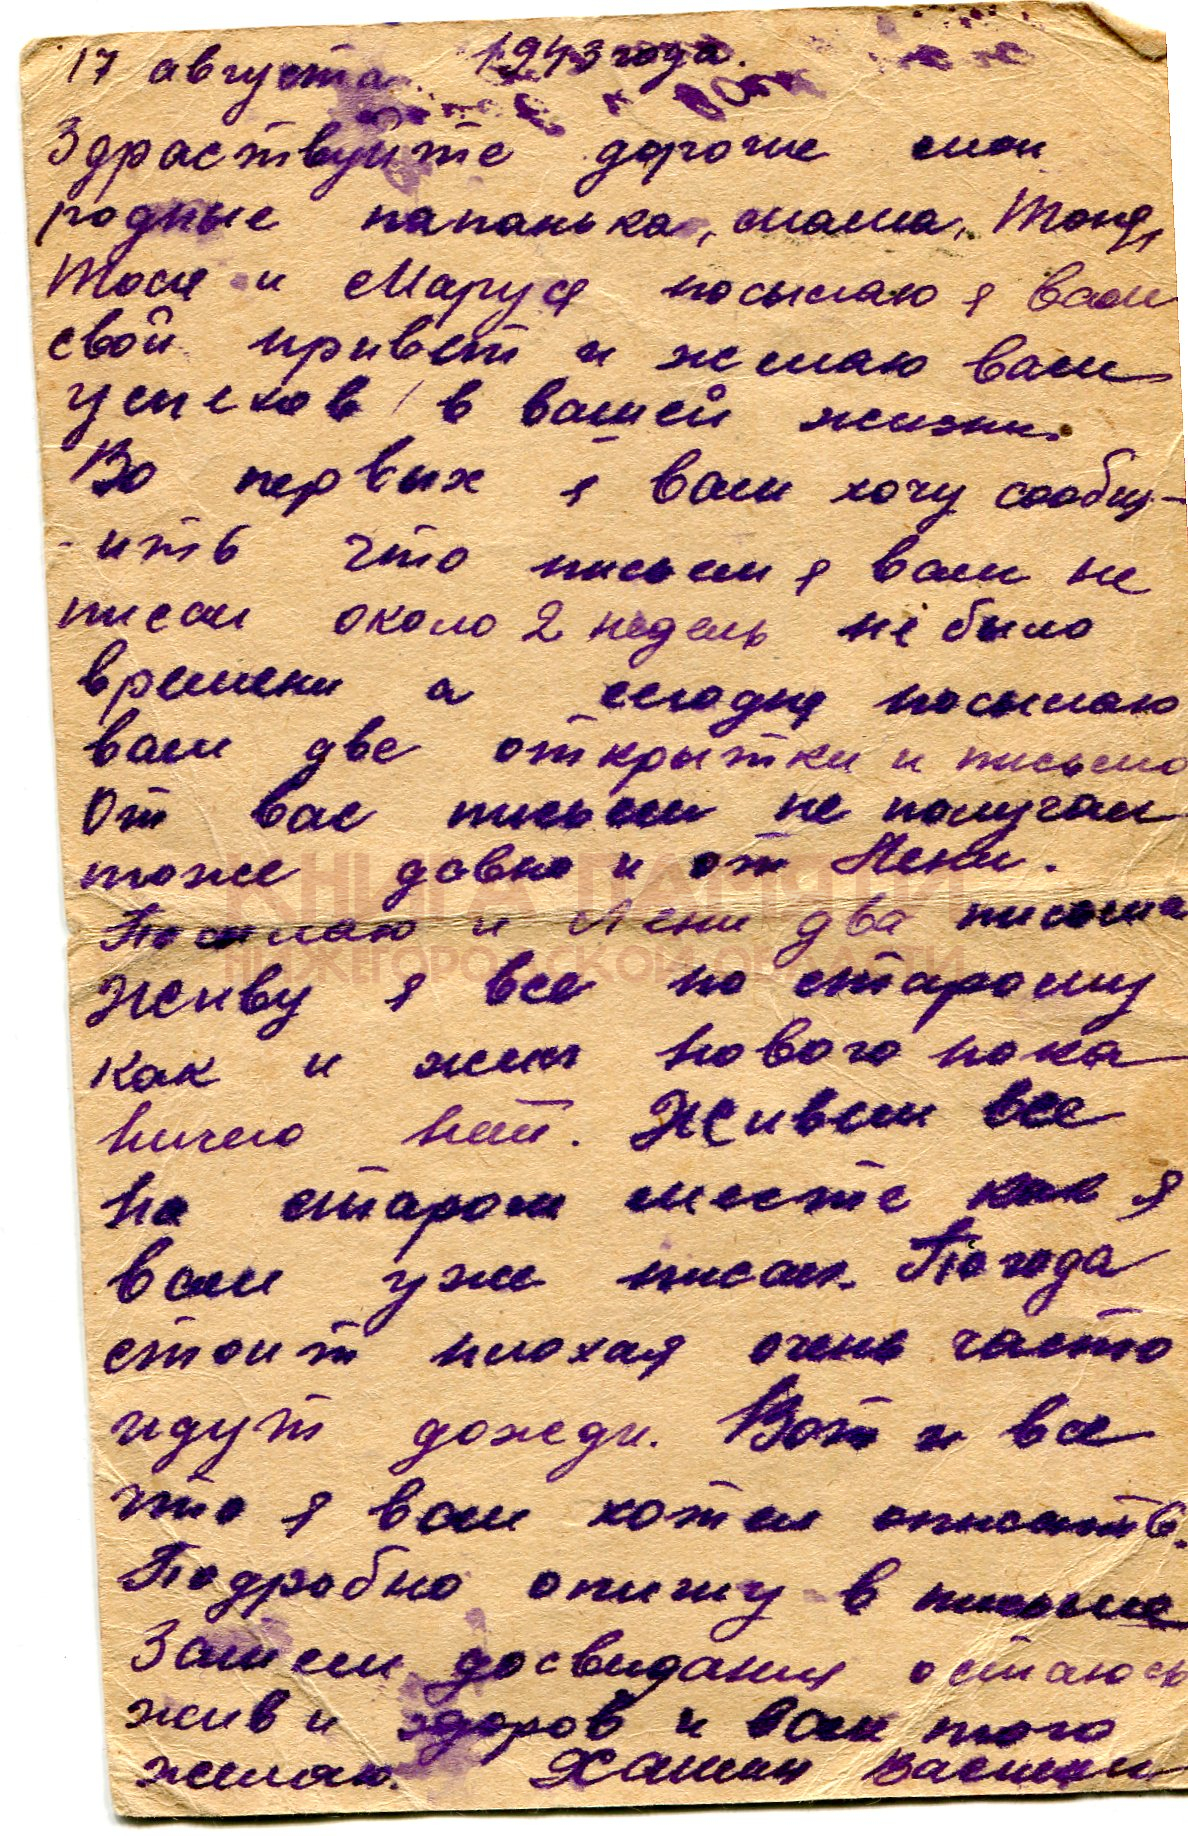 17 августа 1943 года.
Здраствуйте дорогие мои
родные папанька, мама, Тоня,
Тося и Маруся посылаю я вам
свой привет и желаю вам
успехов в вашей жизни.
Во первых я вам хочу сообщ-
-ить что письма я вам не
писал около 2 недель не было
времени а сегодня посылаю
вам две открытки и письмо
От вас писем не получал
тоже давно и от Лени.
Посылаю и Лени два письма
Живу я все по старому
как и жил нового пока
ничего нет. Живем все
на старом месте как я
вам уже писал. Погода
стоит плохая очень часто
идут дожди. Вот и все
что я вам хотел описать.
Подробно опишу в письме
Затем досвидания остаюсь
жив и здоров и вам того
желаю. Хамин Василий
КНИГА ПАМЯТИ
НИЖЕГОРОДСКОЙ ОБЛАСТИ